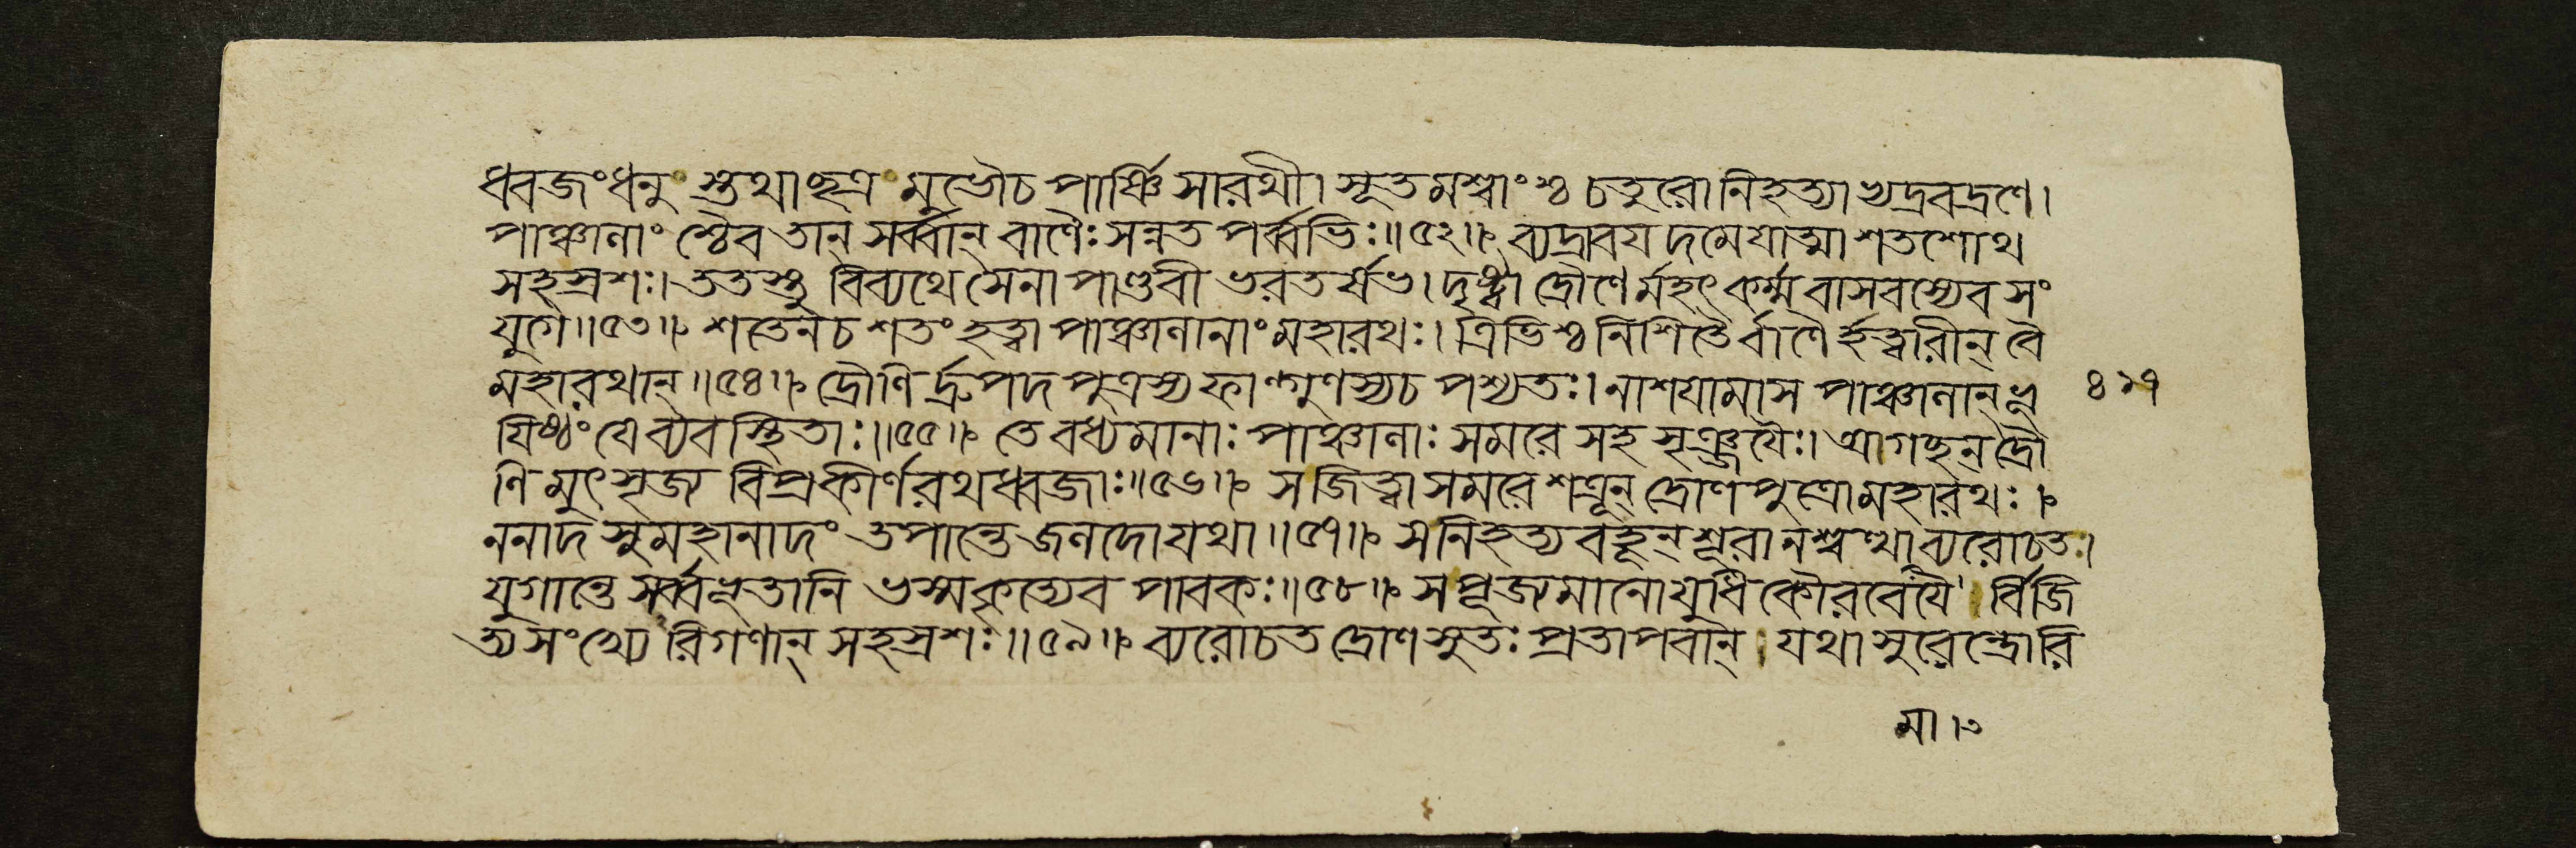 ধ্বজংধনু স্তথাছত্র মুভৌচ পার্ষ্ণি সারথী। সূতমশ্বাংশ্চ চতুরো নিহত্যাভ্যদ্রবদ্রণে।
পাঞ্চালাংশ্চৈব তান্ সর্ব্বান্ বাণৈঃ সন্নত পর্ব্বভিঃ॥৫২॥ ব্যদ্রাবয দমেযাত্মা শতশোথ
সহস্রশঃ। ততস্তু বিব্যথে সেনা পাণ্ডবী ভরতর্ষভ। দৃষ্ট্বা দ্রৌণে র্মহৎ কর্ম্ম বাসবস্যেব সং
যুগে॥৫৩॥ শতেনচ শতং হত্বা পাঞ্চালানাং মহারথঃ। ত্রিভিশ্চ নিশিতৈ র্বাণৈ র্হত্বারীন্ বৈ
মহারথান্॥৫৪॥ দ্রৌণি র্দ্রুপদ পুত্রস্য ফাল্গুণস্যচ পশ্যতঃ। নাশযামাস পাঞ্চালান্ ভূ
যিষ্ঠং যে ব্যবস্থিতাঃ॥৫৫॥ তে বধ্যমানাঃ পাঞ্চালাঃ সমরে সহ সৃঞ্জযৈঃ। আগছন্ দ্রৌ
ণি মুৎসৃজ্য বিপ্রকীর্ণরথধ্বজাঃ॥৫৬॥ সজিত্বা সমরে শত্রূন্ দ্রোণপুত্রো মহারথঃ।
ননাদ সুমহানাদং তপান্তে জলদো যথা॥৫৭॥ সনিহত্য বহূন্ শূরানশ্বত্থা ব্যরোচত।
যুগান্তে সর্ব্বভূতানি ভস্মকৃত্যেব পাবকঃ॥৫৮॥ সপ্পূজ্যমানো যুধি কৌরবেযৈ র্বিজি
ত্য সংখ্যে রিগণান্ সহস্রশঃ॥৫৯॥ ব্যরোচত দ্রোণসুতঃ প্রতাপবান্। যথা সুরেন্দ্রোরি
৪১৭